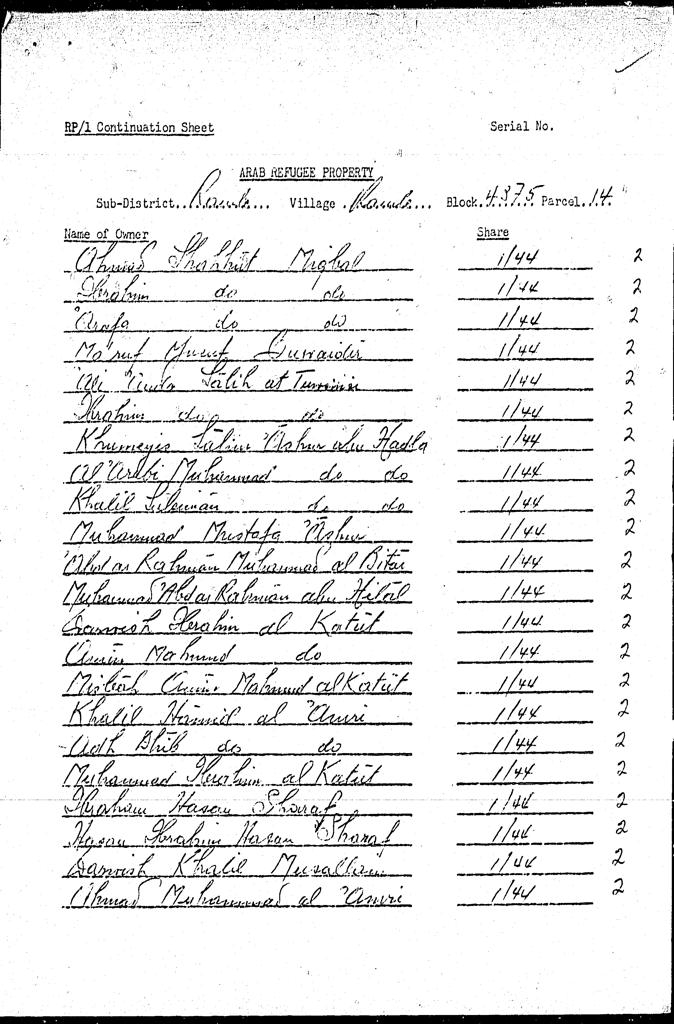 RP/1 Continuation Sheet Serial No.
ARAB REFUGEE PROPERTY
Sub-District..Ramle... Village .Ramle... Block.4375. Parcel.14.
Name of Owner Share
Ahmad Shahhut Miqbal 1/44 2
Ibrahim do do 1/44 2
'Arafa do do 1/44 2
Ma'ruf Yusuf Suwaidir 1/44 2
'Ali Salih at 1/44 2
Ibrahim do do 1/44 2
Khumeyis Salim 'Ashur abu Hadla 1/44 2
Al 'Arabi Muhammad do do 1/44 2
Khalil Suleiman do do 1/44 2
Muhammad Mustafa 'Ashur 1/44 2
'Abd ar Rahmān Muhammad al Bitār 1/44 2
Muhammad 'Abd ar Rahmān abu Hilāl 1/44 2
Darwish Ibrahim al Katūt 1/44 2
Amin Mahmud do 1/44 2
Misbah Amin Mahmud al Katūt 1/44 2
Khalil Hāmid al 'Amri 1/44 2
Dhib do do 1/44 2
Muhammad Ibrahim al Katūt 1/44 2
Ibraham Hasan Sharaf 1/44 2
Hasan Ibrahim Hasan Sharaf 1/44 2
Darwish Khalil Musallam 1/44 2
Ahmad Muhammad al 'Amri 1/44 2